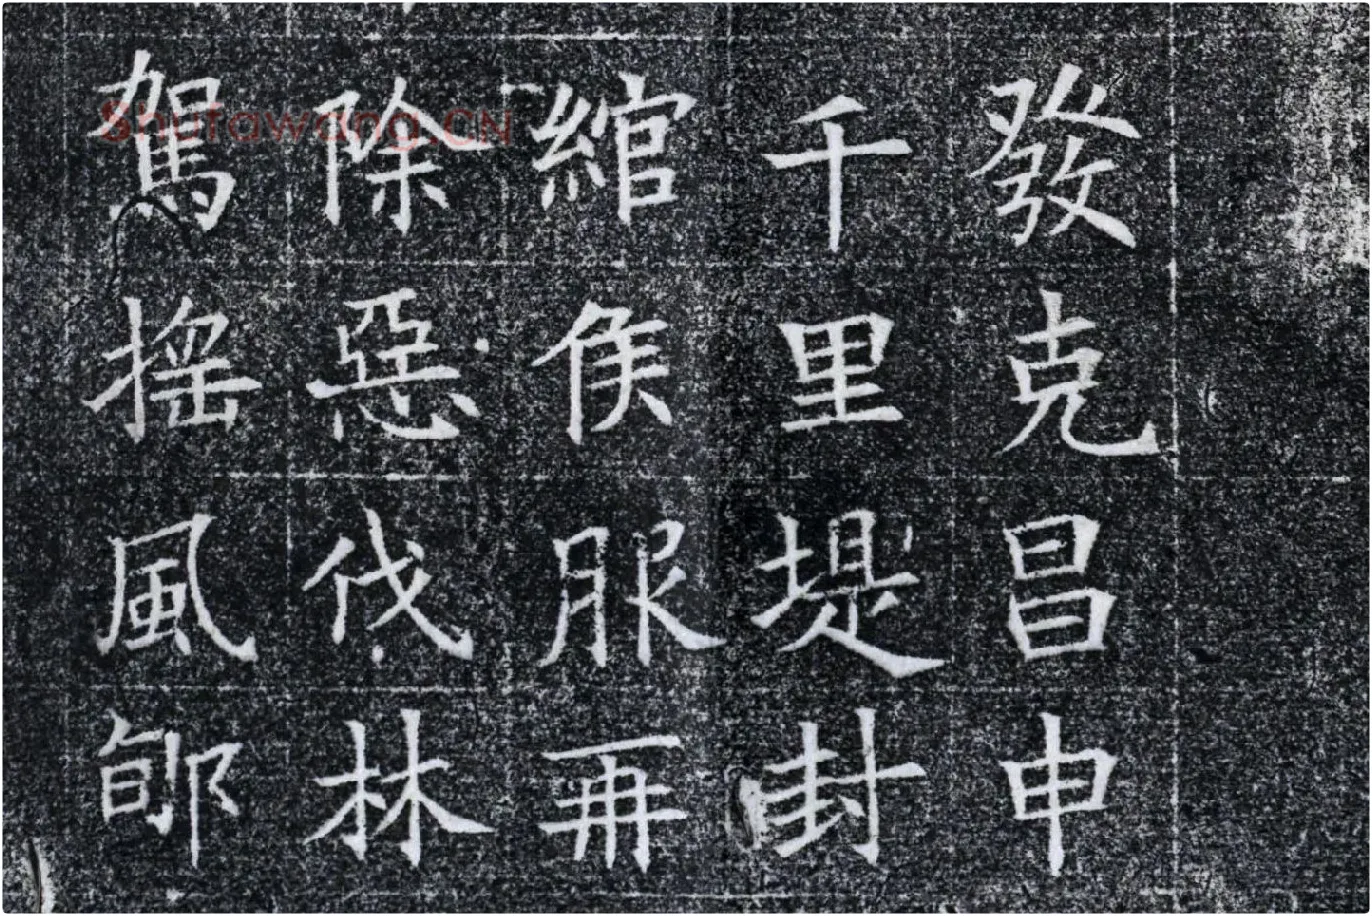 發克昌申
千里堤封
綰侯服再
除惡伐林
駕搖風郇
Shufawang.CN